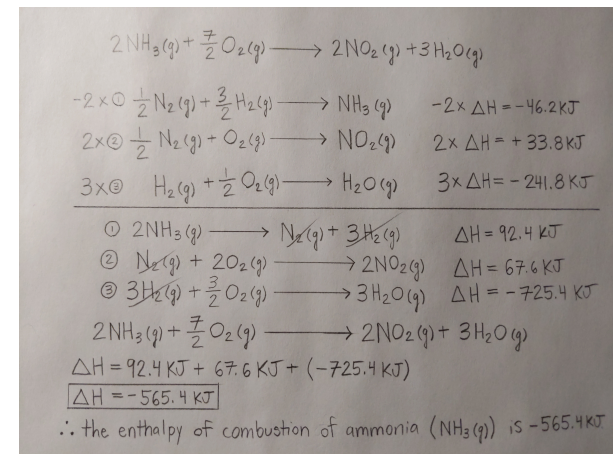 2NH₃(g) + 7/2 O₂(g) ⟶ 2NO₂(g) + 3H₂O(g)
-2x① 1/2 N₂(g) + 3/2 H₂(g) ⟶ NH₃(g) -2x ΔH = -46.2KJ
2x② 1/2 N₂(g) + O₂(g) ⟶ NO₂(g) 2x ΔH = + 33.8KJ
3x③ H₂(g) + 1/2 O₂(g) ⟶ H₂O(g) 3x ΔH = - 241.8KJ
① 2NH₃(g) ⟶ N₂(g) + 3H₂(g) ΔH = 92.4 KJ
② N₂(g) + 2O₂(g) ⟶ 2NO₂(g) ΔH = 67.6 KJ
③ 3H₂(g) + 3/2 O₂(g) ⟶ 3H₂O(g) ΔH = -725.4 KJ
2NH₃(g) + 7/2 O₂(g) ⟶ 2NO₂(g) + 3H₂O(g)
ΔH = 92.4 KJ + 67.6 KJ + (-725.4 KJ)
ΔH = -565.4 KJ
∴ the enthalpy of combustion of ammonia (NH₃(g)) is -565.4KJ.